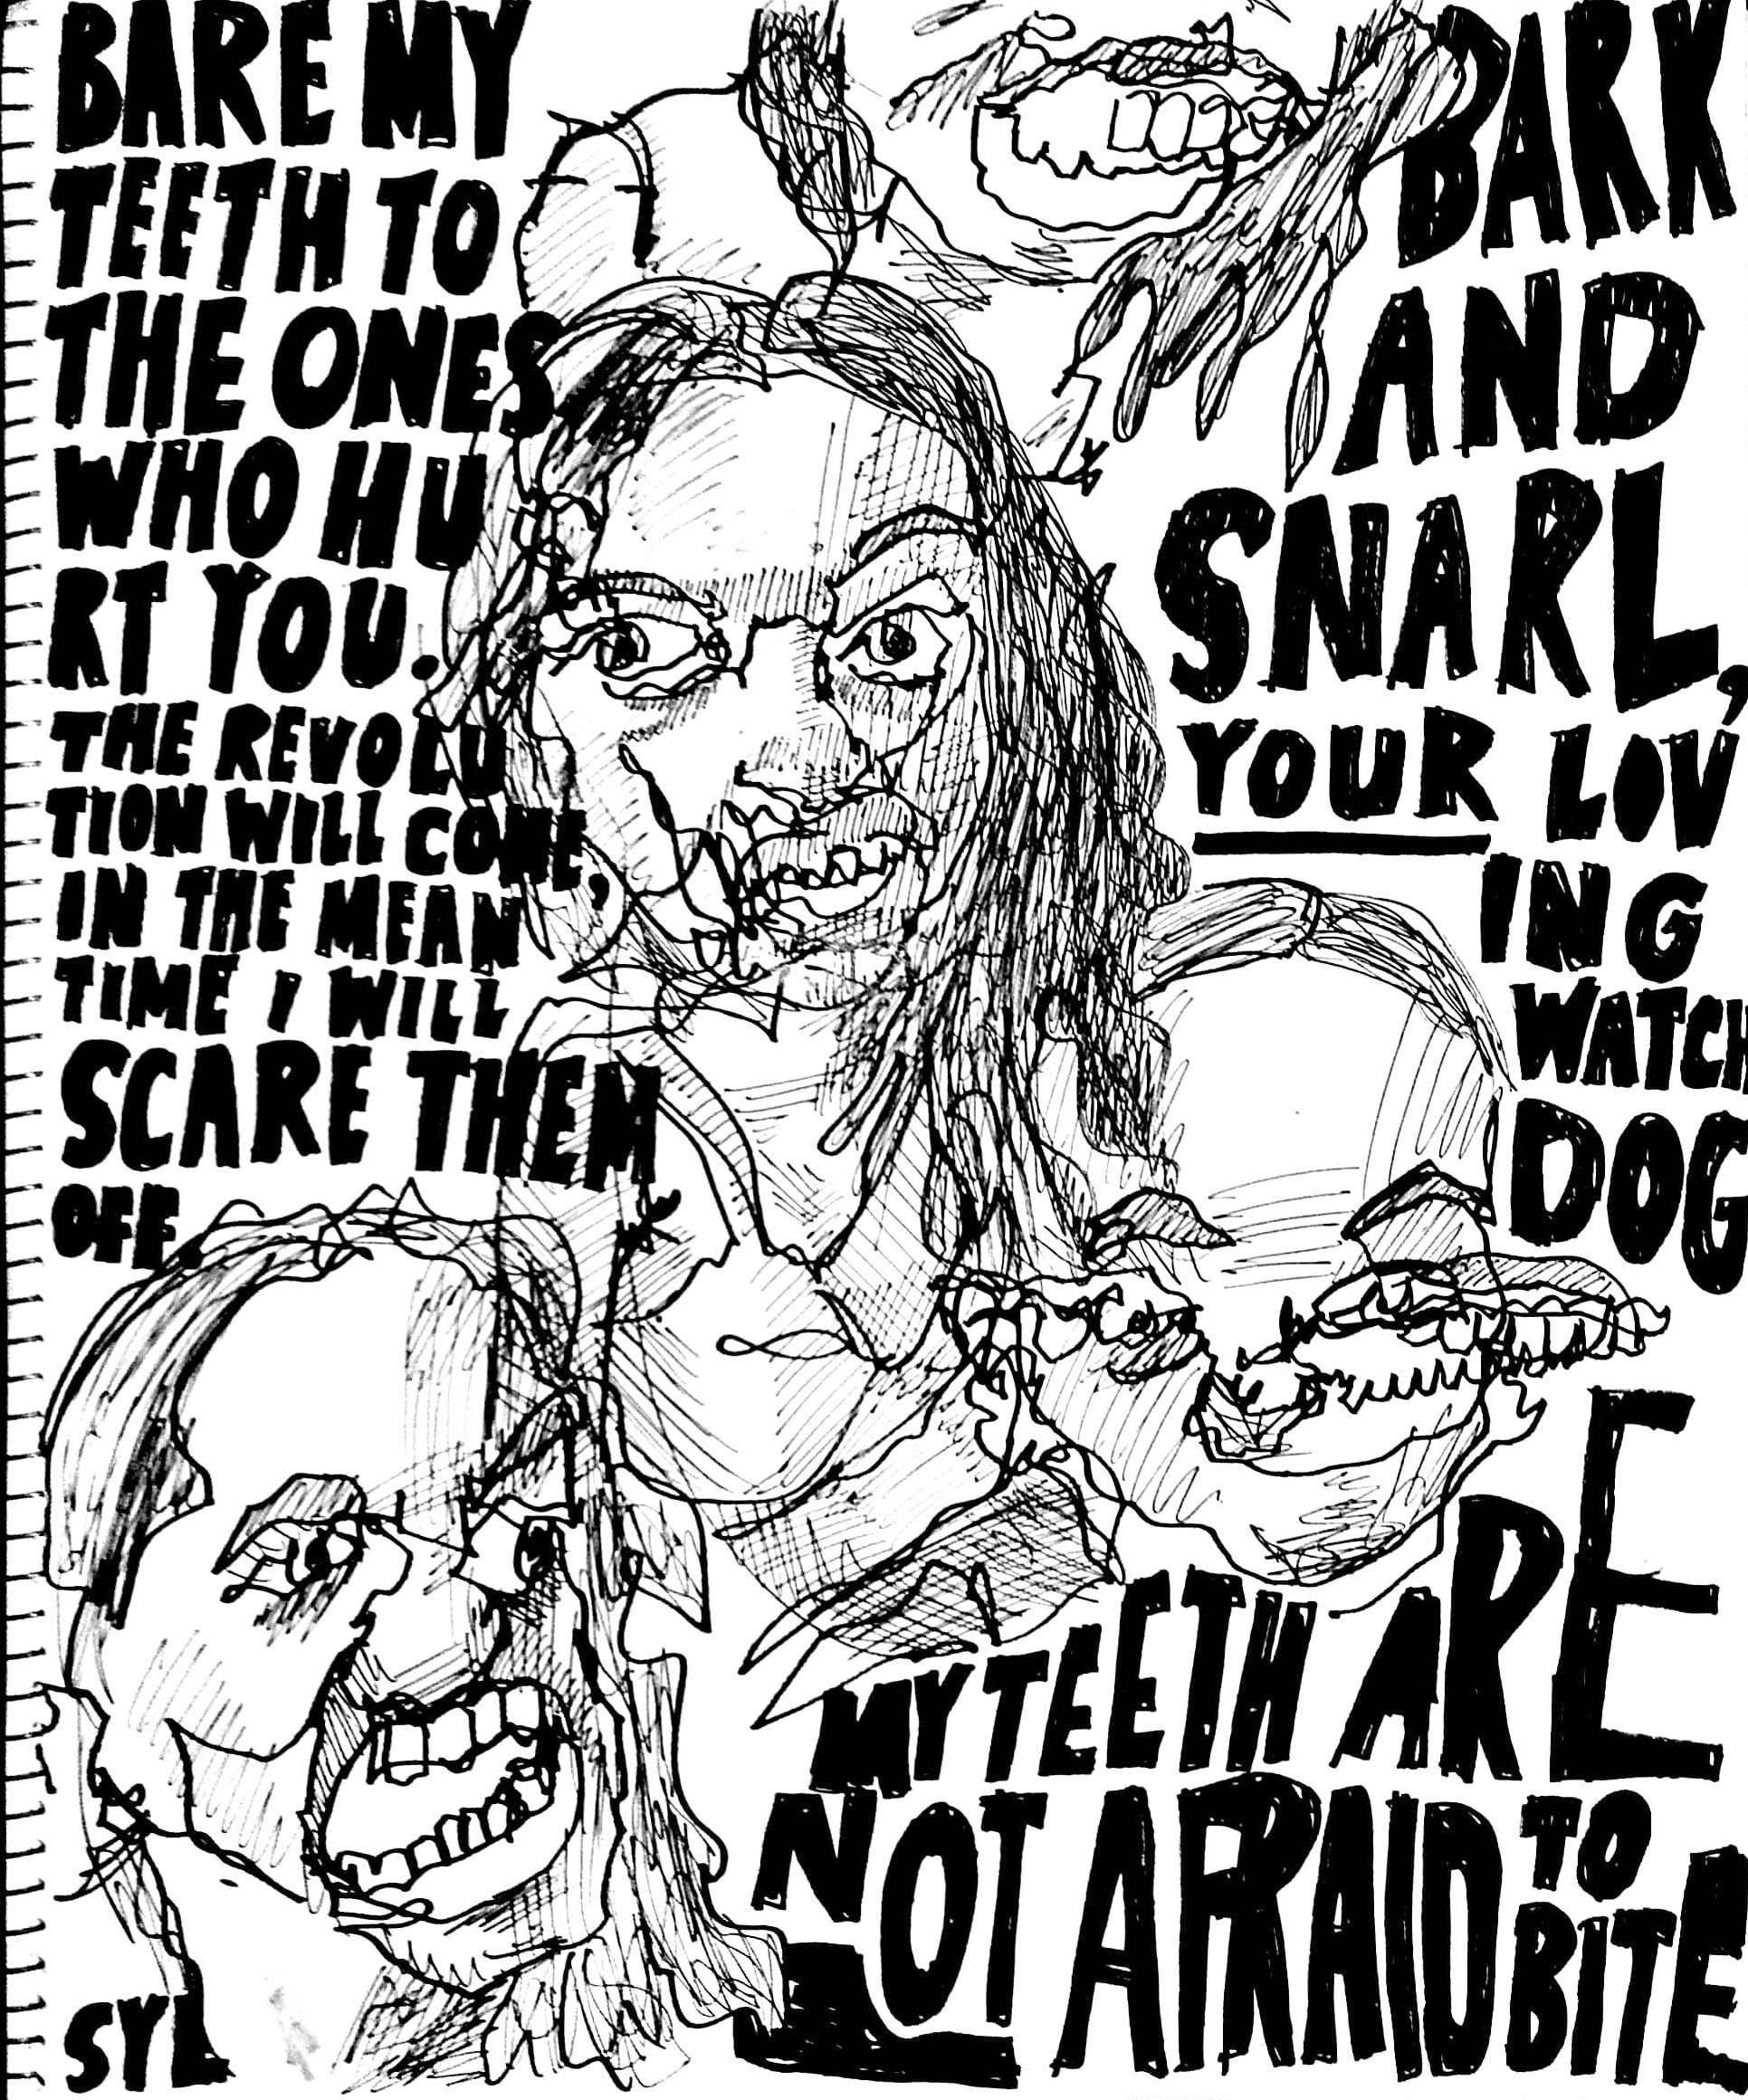 BARE MY
TEETH TO
THE ONES
WHO HU
RT YOU.
THE REVOLU
TION WILL COME,
IN THE MEAN
TIME I WILL
SCARE THEM
OFF.
BARK
AND
SNARL,
YOUR LOV
ING
WATCH
DOG
MY TEETH ARE
NOT AFRAID TO
BITE
SYL